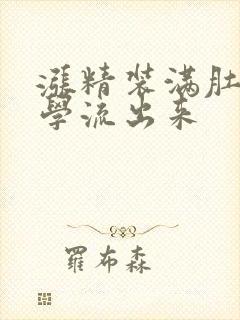 漲精装满肚
學流出来
羅布森